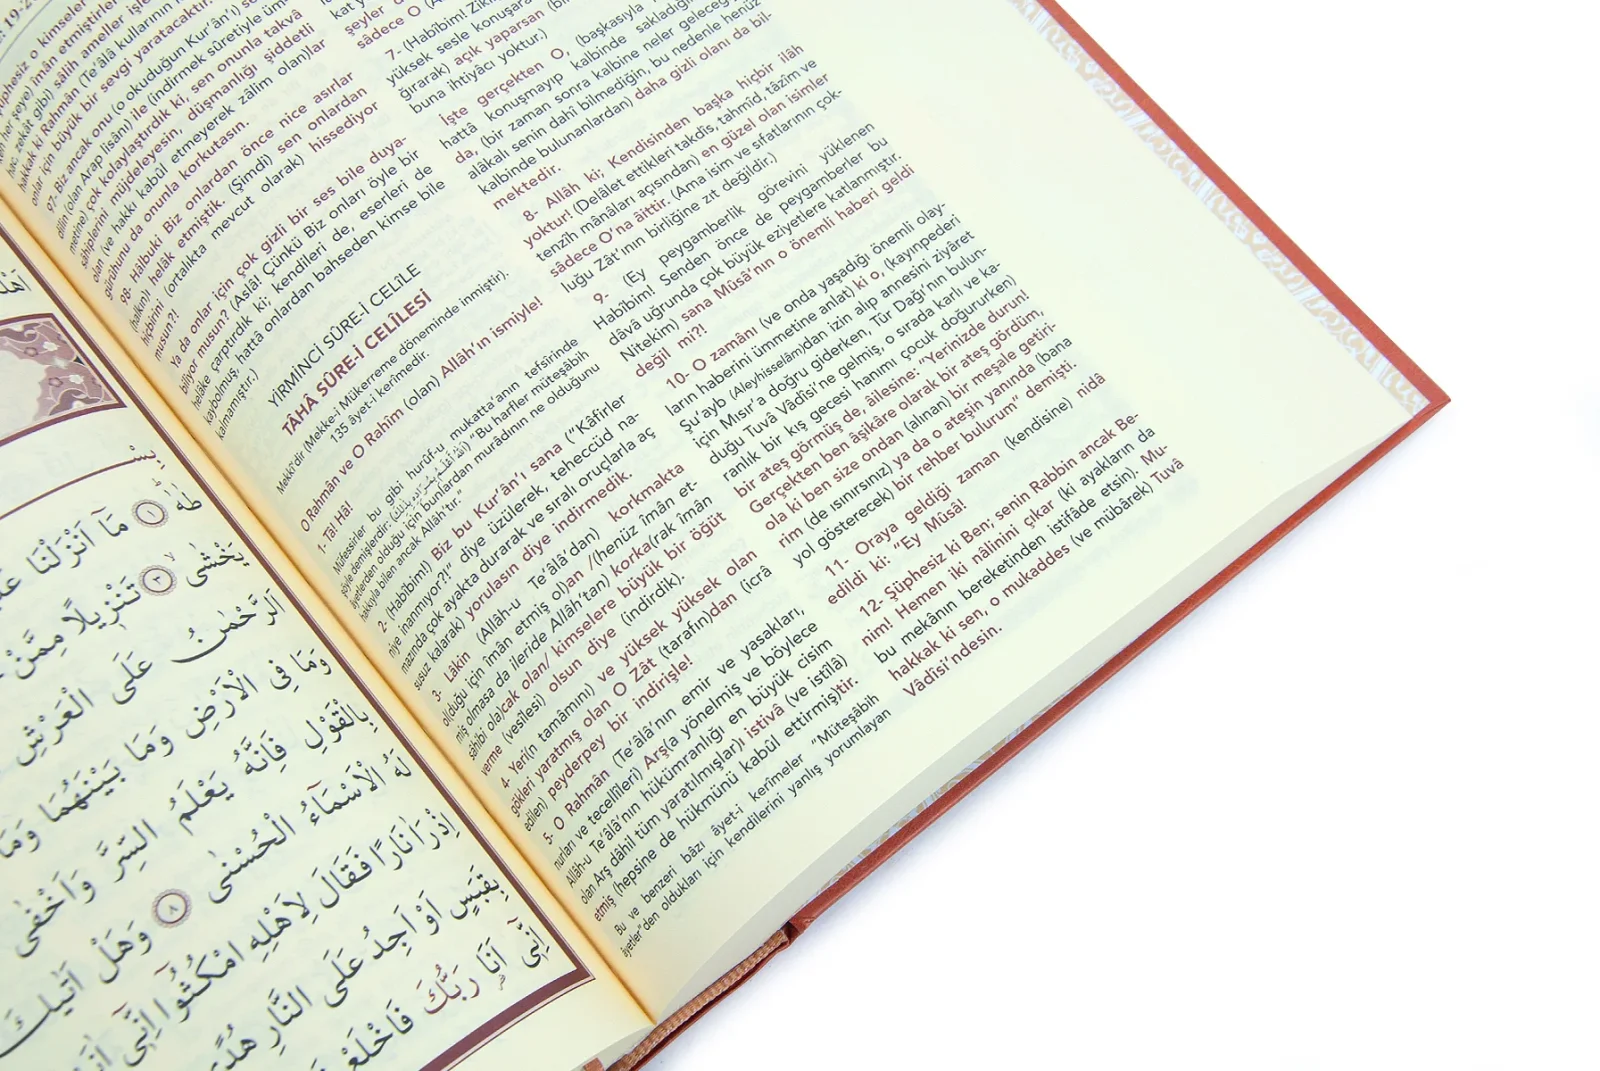 19-20
Şüphesiz o kimseler
her şeye) îmân etmiştirler
hac, zekât gibi) sâlih ameller işle
hakkak ki Rahmân (Te‘âlâ kullarının
onlar için büyük bir sevgi yaratacaktır.
97- Biz ancak onu (o okuduğun Kur’ân’ı) se
dilin (olan Arap lisânı) ile (indirmek sûretiyle üm
metine) çok kolaylaştırdık ki, sen onunla takvâ
sâhiplerini müjdeleyesin, düşmanlığı şiddetli
olan (ve hakkı kabûl etmeyerek zâlim olan)lar
gürûhunu da onunla korkutasın.
98- Hâlbuki Biz onlardan önce nice asırlar
(halkın)ı helâk etmiştik. (Şimdi) sen onlardan
hiçbirini (ortalıkta mevcut olarak) hissediyor
musun?!
Ya da onlar için çok gizli bir ses bile duya-
biliyor musun? (Aslâ! Çünkü Biz onları öyle bir
helâke çarptırdık ki; kendileri de, eserleri de
kaybolmuş, hattâ onlardan bahseden kimse bile
kalmamıştır.)
YİRMİNCİ SÛRE-İ CELÎLE
TÂHÂ SÛRE-İ CELÎLESİ
Mekkî’dir (Mekke-i Mükerreme döneminde inmiştir).
135 âyet-i kerîmedir.
O Rahmân ve O Rahîm (olan) Allâh’ın ismiyle!
1- Tâ! Hâ!
Müfessirler bu gibi hurûf-u mukatta‘anın tefsirinde
şöyle demişlerdir: “Bu harfler müteşâbih
âyetlerden olduğu için bunlardan murâdının ne olduğunu
hakkıyla bilen ancak Allâh’tır.”
2- (Habîbim!) Biz bu Kur’ân’ı sana (“Kâfirler
niye inanmıyor?!” diye üzülerek, teheccüd na-
mazında çok ayakta durarak ve sıralı oruçlarla aç
susuz kalarak) yorulasın diye indirmedik.
3- Lâkin (Allâh-u Te‘âlâ’dan) korkmakta
olduğu için îmân etmiş ol)an /(henüz îmân et-
miş olmasa da ileride Allâh’tan) korka(rak îmân
sâhibi ola)cak olan/ kimselere büyük bir öğüt
verme (vesîlesi) olsun diye (indirdik).
4- Yeri(n tamâmını) ve yüksek yüksek olan
gökleri yaratmış olan O Zât (tarafın)dan (icrâ
edilen) peyderpey bir indirişle!
5- O Rahmân (Te‘âlâ’nın emir ve yasakları,
nurları ve tecellîleri) Arş(a yönelmiş ve böylece
Allâh-u Te‘âlâ’nın hükümranlığı en büyük cisim
olan Arş dâhil tüm yaratılmışlar)ı istivâ (ve istîlâ)
etmiş (hepsine de hükmünü kabûl ettirmiş)tir.
Bu ve benzeri bâzı âyet-i kerîmeler “Müteşâbih
âyetler”den oldukları için kendilerini yanlış yorumlayan
kat y
şeyler d
sâdece O (A
7- (Habîbim! Zikir
yüksek sesle konuşara
ğırarak) açık yaparsan (bi
buna ihtiyâcı yoktur.)
İşte gerçekten O, (başkasıyla
hattâ konuşmayıp kalbinde sakladığın
da, (bir zaman sonra kalbine neler geleceğ
alâkalı senin dahî bilmediğin, bu nedenle henüz
kalbinde bulunanlardan) daha gizli olanı da bil-
mektedir.
8- Allâh ki; Kendisinden başka hiçbir ilâh
yoktur! (Delâlet ettikleri takdîs, tahmîd, tâzîm ve
tenzîh mânâları açısından) en güzel olan isimler
sâdece O’na âittir. (Ama isim ve sıfatlarının çok-
luğu Zât’ının birliğine zıt değildir.)
9- (Ey peygamberlik görevini yüklenen
Habîbim! Senden önce de peygamberler bu
dâvâ uğrunda çok büyük eziyetlere katlanmıştır.
Nitekim) sana Mûsâ’nın o önemli haberi geldi
değil mi?!
10- O zamânı (ve onda yaşadığı önemli olay-
ların haberini ümmetine anlat) ki o, (kayınpederi
Şu‘ayb (Aleyhisselâm)dan izin alıp annesini ziyâret
için Mısır’a doğru giderken, Tûr Dağı’nın bulun-
duğu Tuvâ Vâdîsi’ne gelmiş, o sırada karlı ve ka-
ranlık bir kış gecesi hanımı çocuk doğururken)
bir ateş görmüş de, âilesine: “Yerinizde durun!
Gerçekten ben âşikâre olarak bir ateş gördüm,
ola ki ben size ondan (alınan) bir meşale getiri-
rim (de ısınırsınız) ya da o ateşin yanında (bana
yol gösterecek) bir rehber bulurum” demişti.
11- Oraya geldiği zaman (kendisine) nidâ
edildi ki: “Ey Mûsâ!
12- Şüphesiz ki Ben; senin Rabbin ancak Be-
nim! Hemen iki nâlinini çıkar (ki ayakların da
bu mekânın bereketinden istifâde etsin). Mu-
hakkak ki sen, o mukaddes (ve mübârek) Tuvâ
Vâdîsi’ndesin.
طٰهٰ ١ مَٓا اَنْزَلْنَا
يَخْشٰى ٣ تَنْزِيلًا مِمَّنْ
اَلرَّحْمٰنُ عَلَى الْعَرْشِ
وَمَا فِي الْاَرْضِ وَمَا بَيْنَهُمَا وَمَا
بِالْقَوْلِ فَاِنَّهُ يَعْلَمُ السِّرَّ وَاَخْفٰى
لَهُ الْاَسْمَٓاءُ الْحُسْنٰى ٨ وَهَلْ اَتٰيكَ
اِذْ رَاٰ نَارًا فَقَالَ لِاَهْلِهِ امْكُثُٓوا اِنِّٓي
بِقَبَسٍ اَوْ اَجِدُ عَلَى النَّارِ هُدًى
اِنِّٓي اَنَا۬ رَبُّكَ فَاخْلَعْ